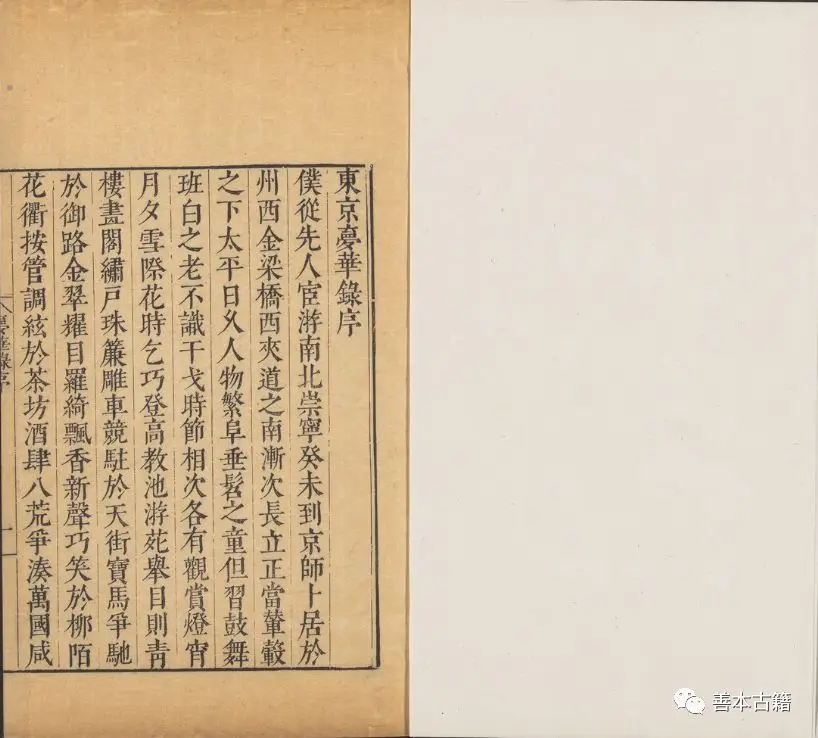 東京夢華錄序
僕從先人宦游南北崇寧癸未到京師卜居於
州西金梁橋西夾道之南漸次長立正當輦轂
之下太平日久人物繁阜垂髫之童但習鼓舞
班白之老不識干戈時節相次各有觀賞燈宵
月夕雪際花時乞巧登高教池游苑舉目則青
樓畫閣繡戶珠簾雕車競駐於天街寶馬爭馳
於御路金翠耀目羅綺飄香新聲巧笑於柳陌
花衢按管調絃於茶坊酒肆八荒爭湊萬國咸
夢華錄序
一
善本古籍